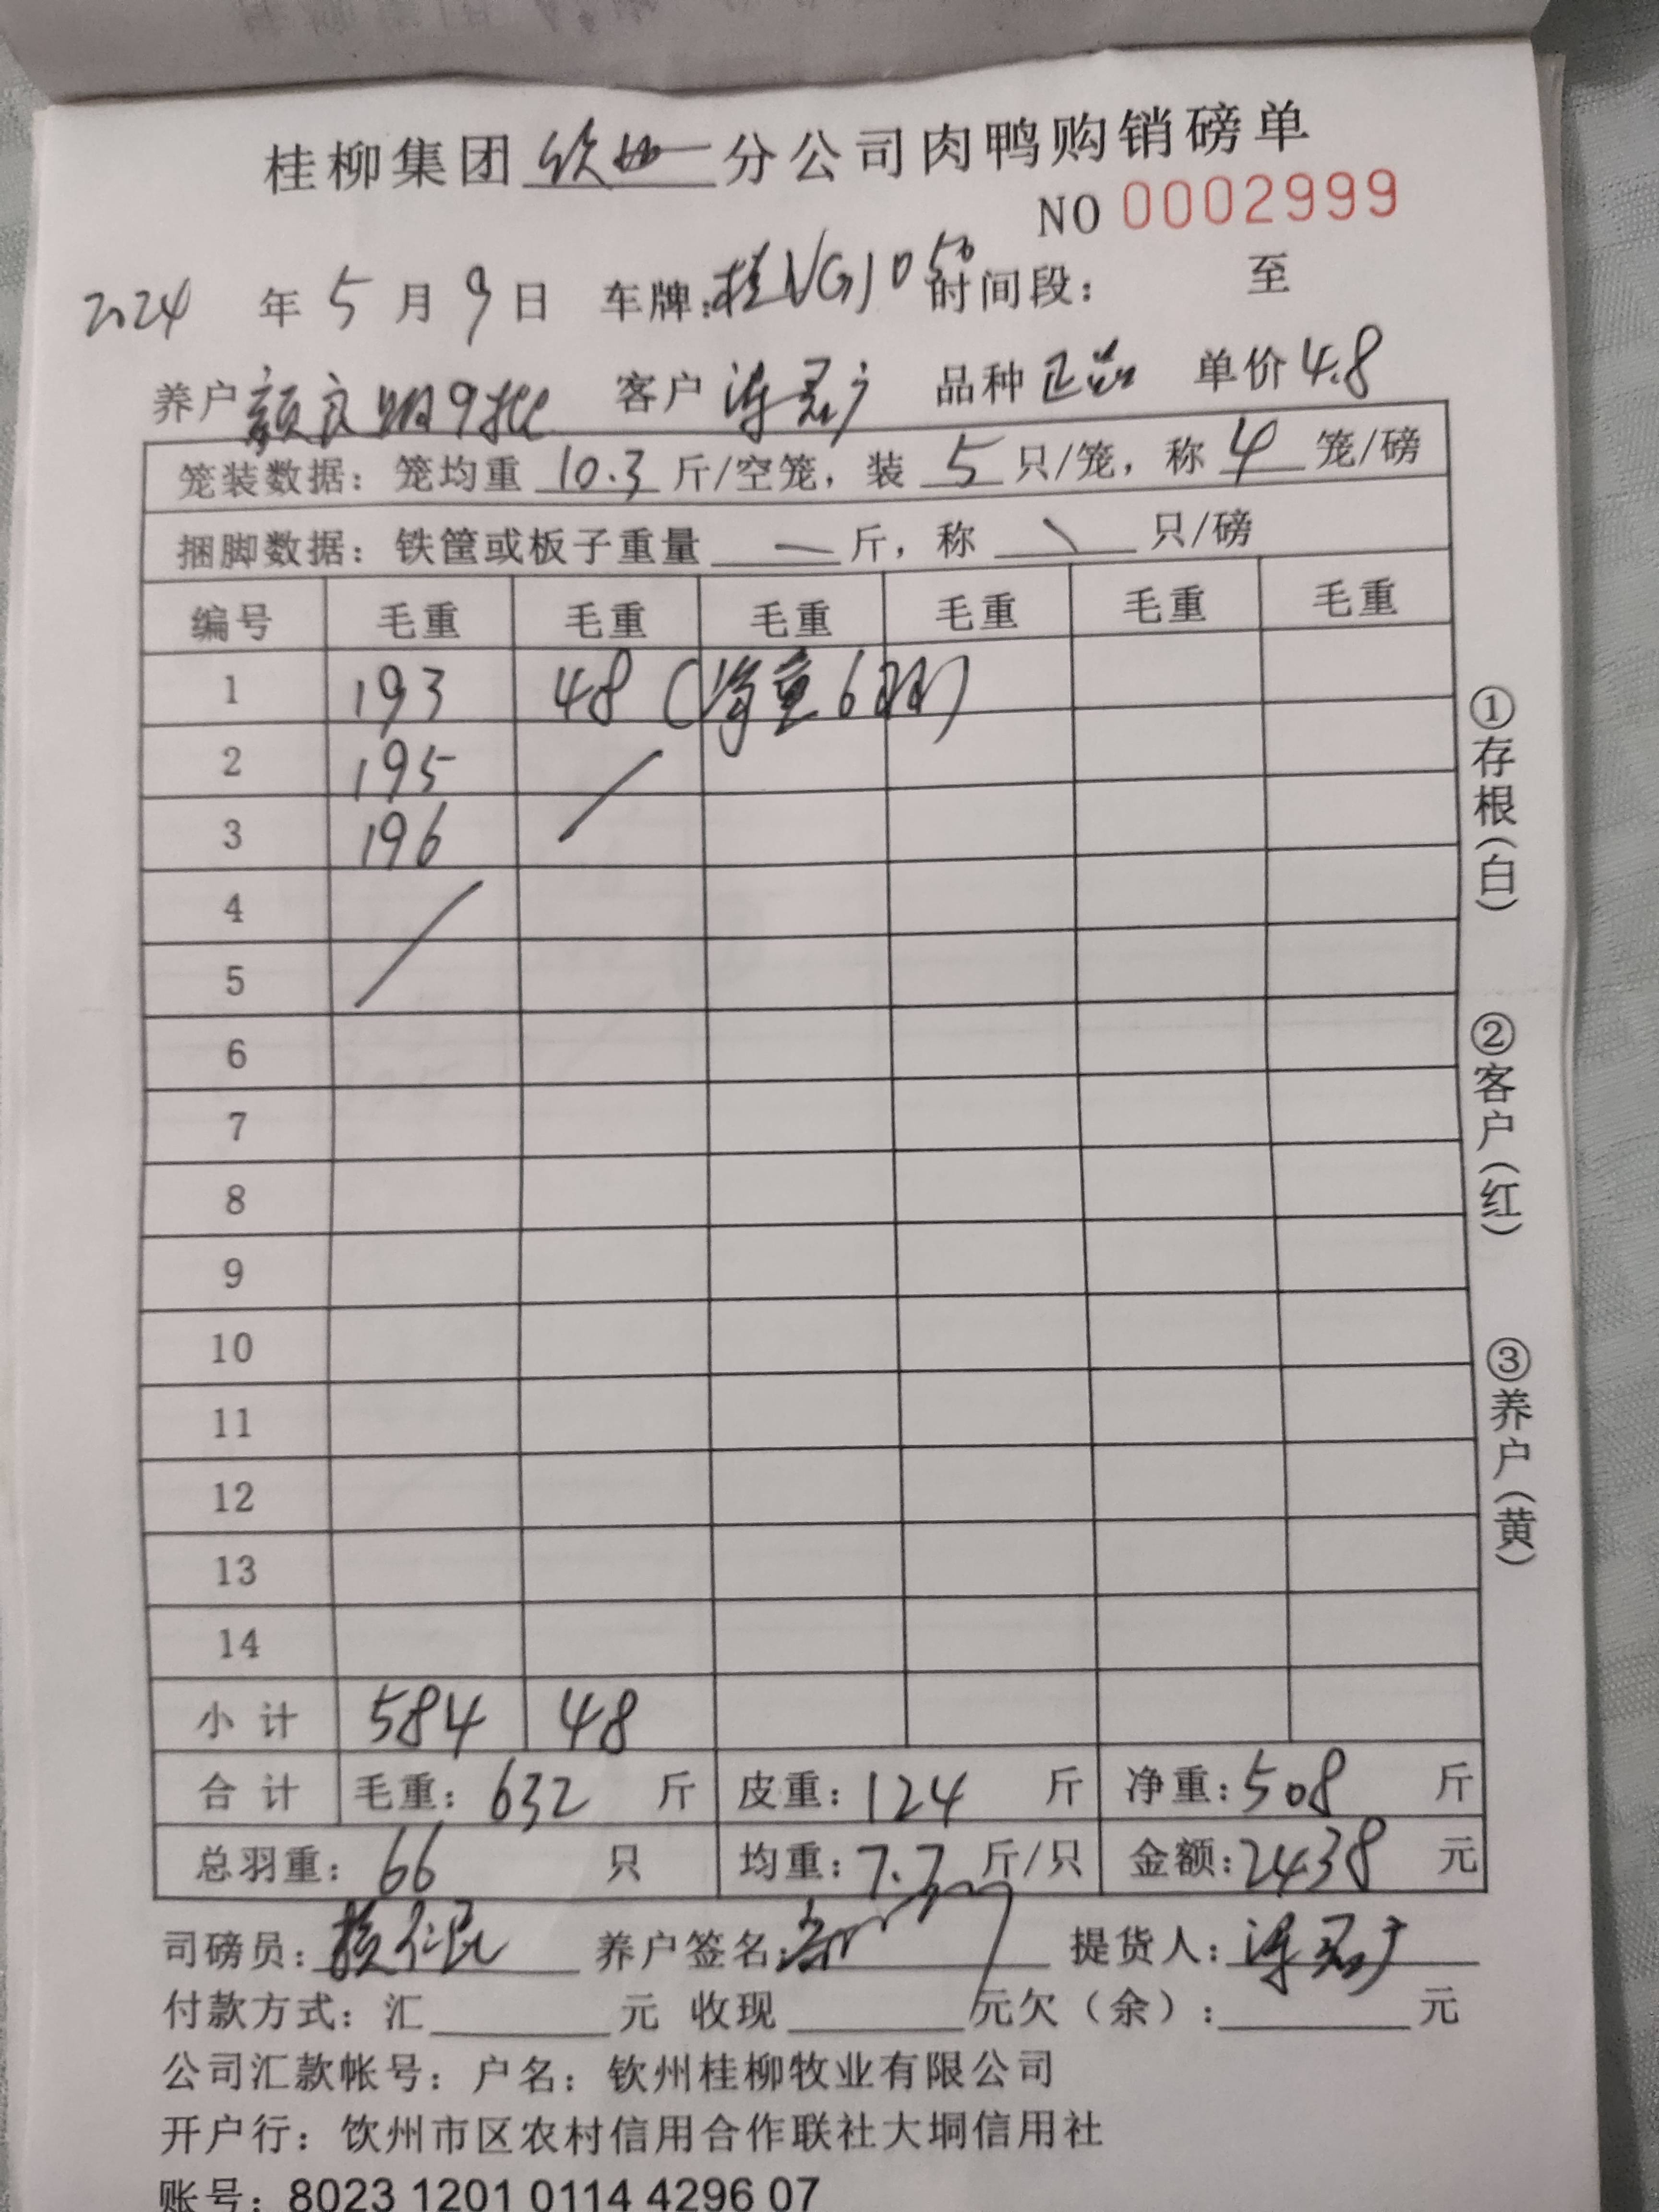 桂柳集团钦州分公司肉鸭购销磅单
NO 0002999
2024年5月9日 车牌:桂NG1056 时间段: 至
养户颜良明9批 客户 品种正品 单价4.8
笼装数据: 笼均重10.3斤/空笼, 装5只/笼, 称4笼/磅
捆脚数据: 铁筐或板子重量 — 斤, 称 \ 只/磅
编号 毛重 毛重 毛重 毛重 毛重 毛重
1 193 48 (净重6羽)
2 195
3 196
4
5
6
7
8
9
10
11
12
13
14
小计 584 48
合计 毛重: 632 斤 皮重: 124 斤 净重: 508 斤
总羽重: 66 只 均重: 7.7 斤/只 金额: 2438 元
司磅员: 养户签名: 提货人:
付款方式: 汇 元 收现 元欠(余): 元
公司汇款帐号: 户名: 钦州桂柳牧业有限公司
开户行: 饮州市区农村信用合作联社大垌信用社
账号: 8023 1201 0114 4296 07
①存根(白)
②客户(红)
③养户(黄)